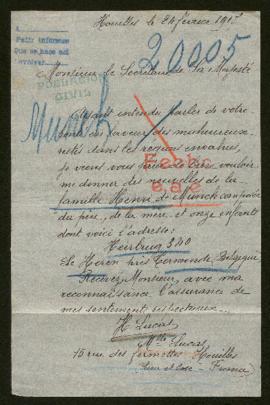 Houilles le 24 février 191
Petit informe
Que se pase al
20005
Monsieur le Secrétaire de Sa Majesté
POBLACION
CIVIL
Ayant entendu parler de votre
bonté en faveur des malheureux
restés dans les régions envahies,
je viens vous prier de bien vouloir
me donner des nouvelles de la
famille Henri de Munck composée
du père, de la mère et onze enfants
dont voici l'adresse:
Munck
Heirbrug 340
près Termonde Belgique
Recevez, Monsieur, avec ma
reconnaissance l'assurance de
mes sentiments respectueux.
H Lucas
Mlle Lucas
15 rue des Houilles
Seine et Oise - France